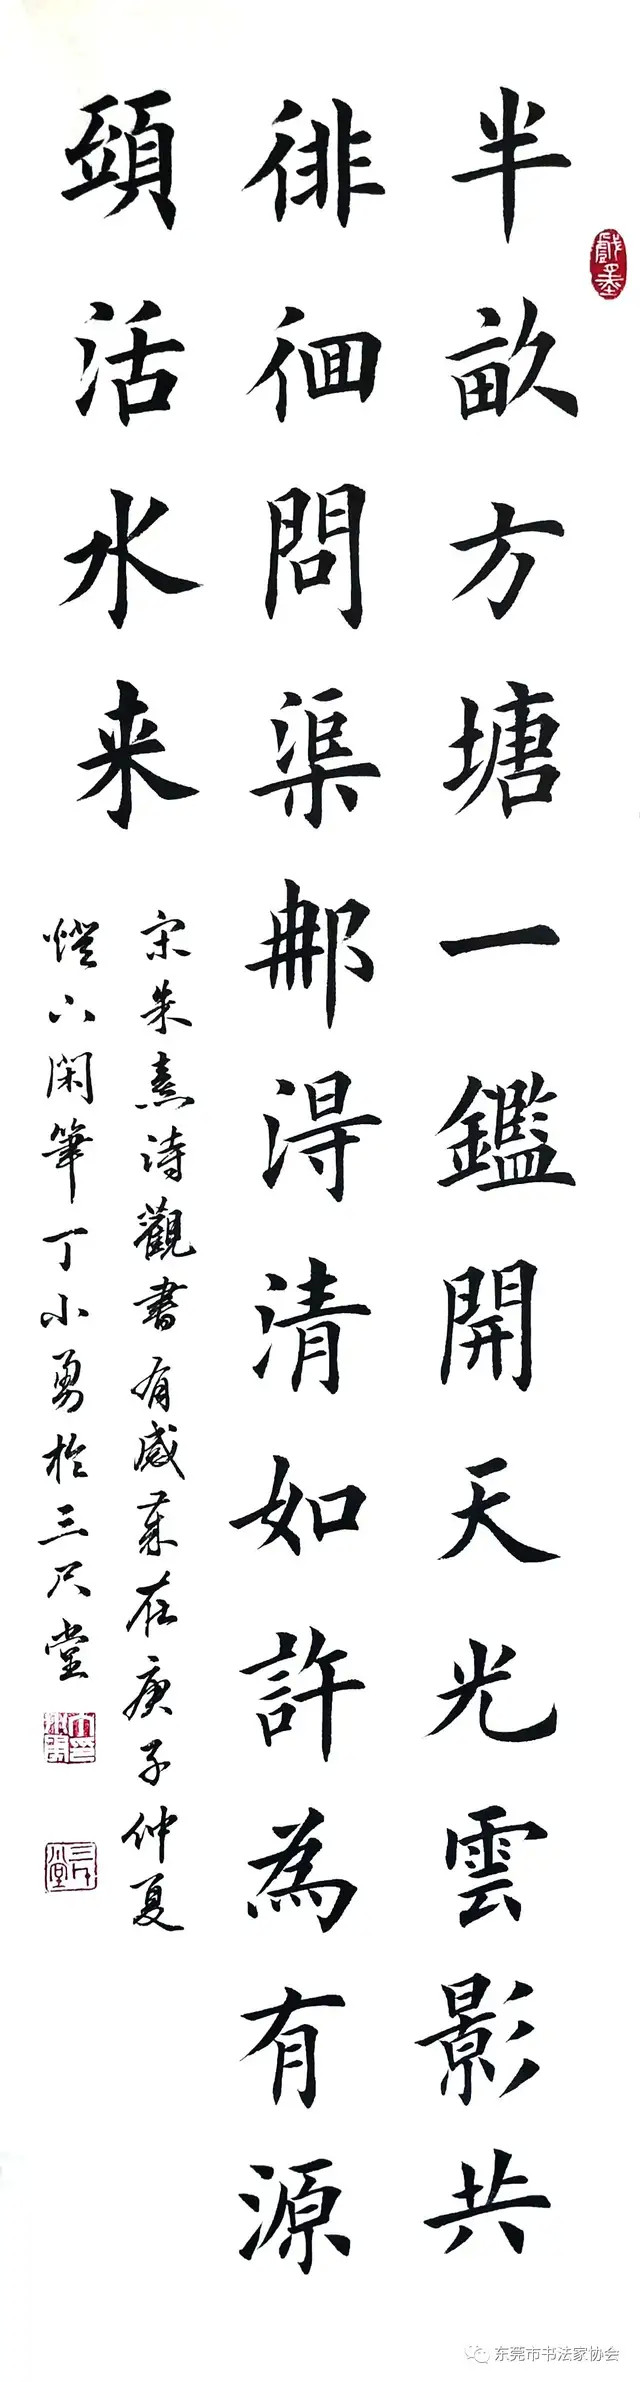 半畝方塘一鑑開天光雲影共
徘徊問渠那淂清如許為有源
頭活水来
宋朱熹诗觀書有感歲在庚子仲夏
燈下閑筆丁小勇於三尺堂
戲墨
东莞市书法家协会